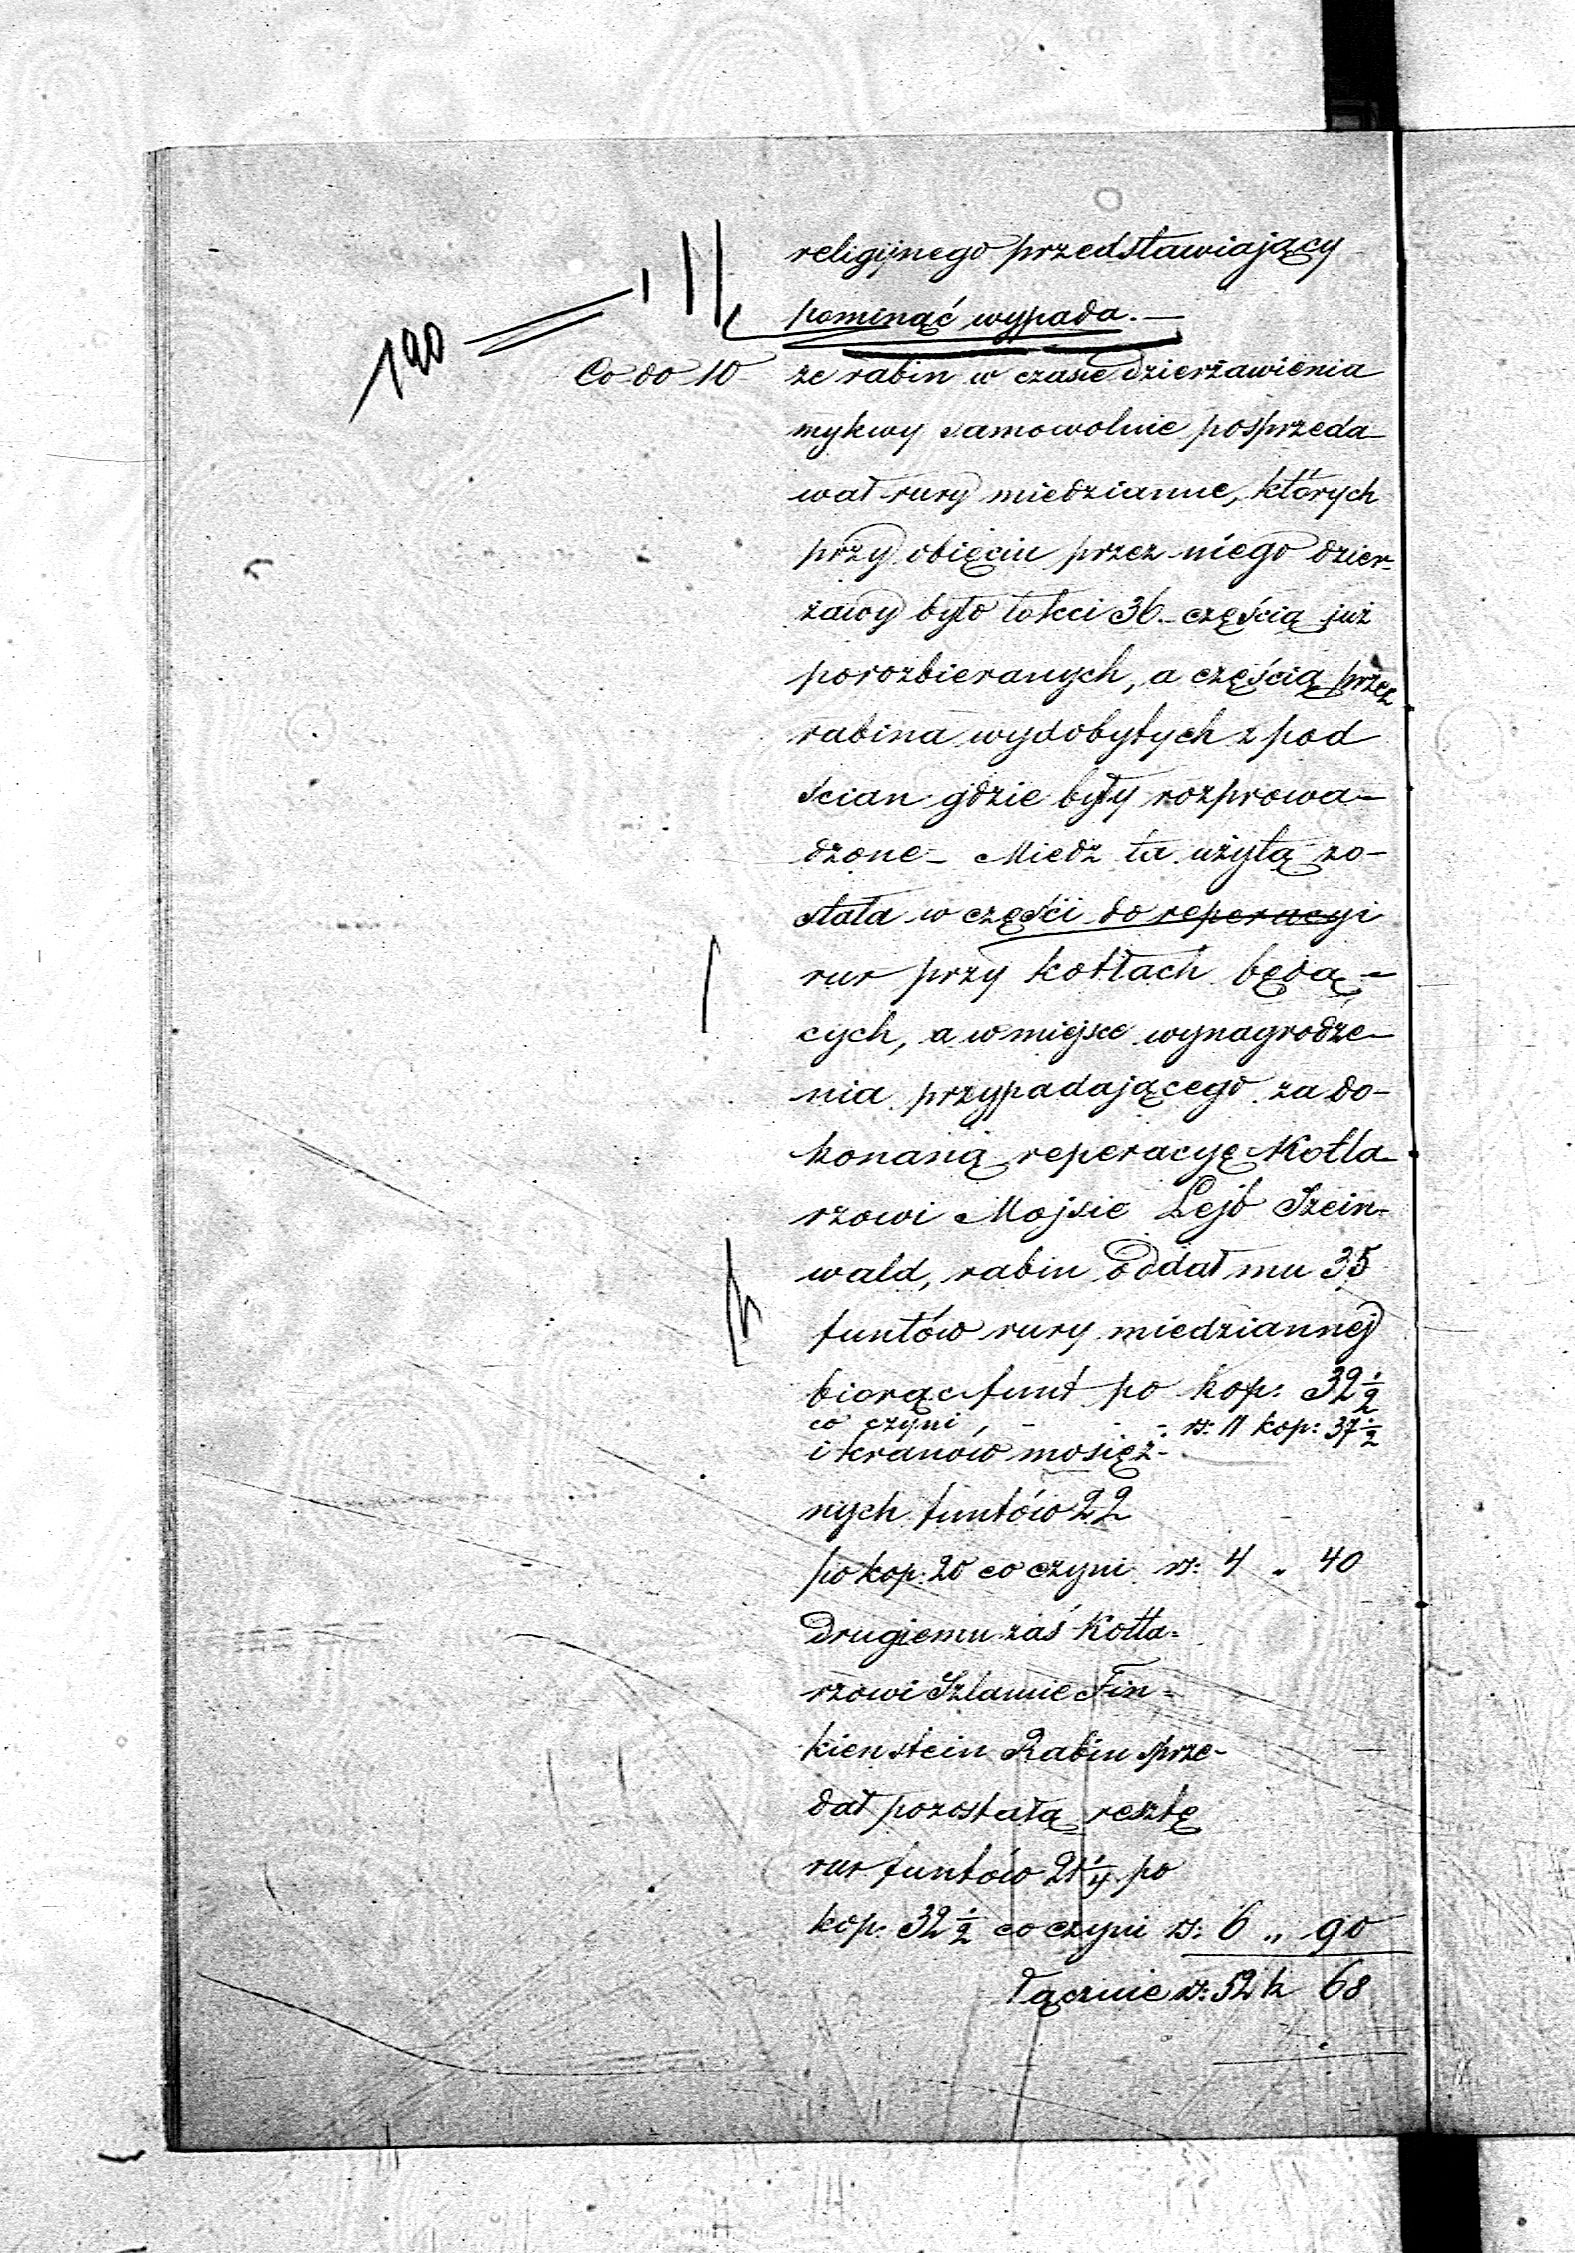 religijnego przedstawiający
pominąć wypada.—
190
Co do 10 że rabin w czasie dzierżawienia
mykwy samowolnie posprzeda-
wał rury miedzianne, których
przy obięciu przez niego dzier-
żawy było łokci 36 częścią już
porozbieranych, a częścią przez
rabina wydobytych z pod
ścian gdzie były rozprowa-
dzone – Miedz ta użytą zo-
stała w części do reperacyi
rur przy kotłach będą-
cych, a w miejsce wynagrodze-
nia przypadającego za do-
konaną reperacyę Kotla-
rzowi Mojsie Lejb Szein-
wald, rabin oddał mu 35
funtów rury miedziannej
biorąc funt po kop: 32 1/2
co czyni - - - rs: 11 kop: 37 1/2
i kranów mosięż-
nych funtów 22
po kop: 20 co czyni rs: 4 „ 40
Drugiemu zaś Kotla-
rzowi Szlamie Fin-
kienstein Rabin sprze-
dał pozostałą resztę
rur funtów 21 1/4 po
kop: 32 1/2 co czyni rs: 6 „ 90
łącznie rs: 52 k 68